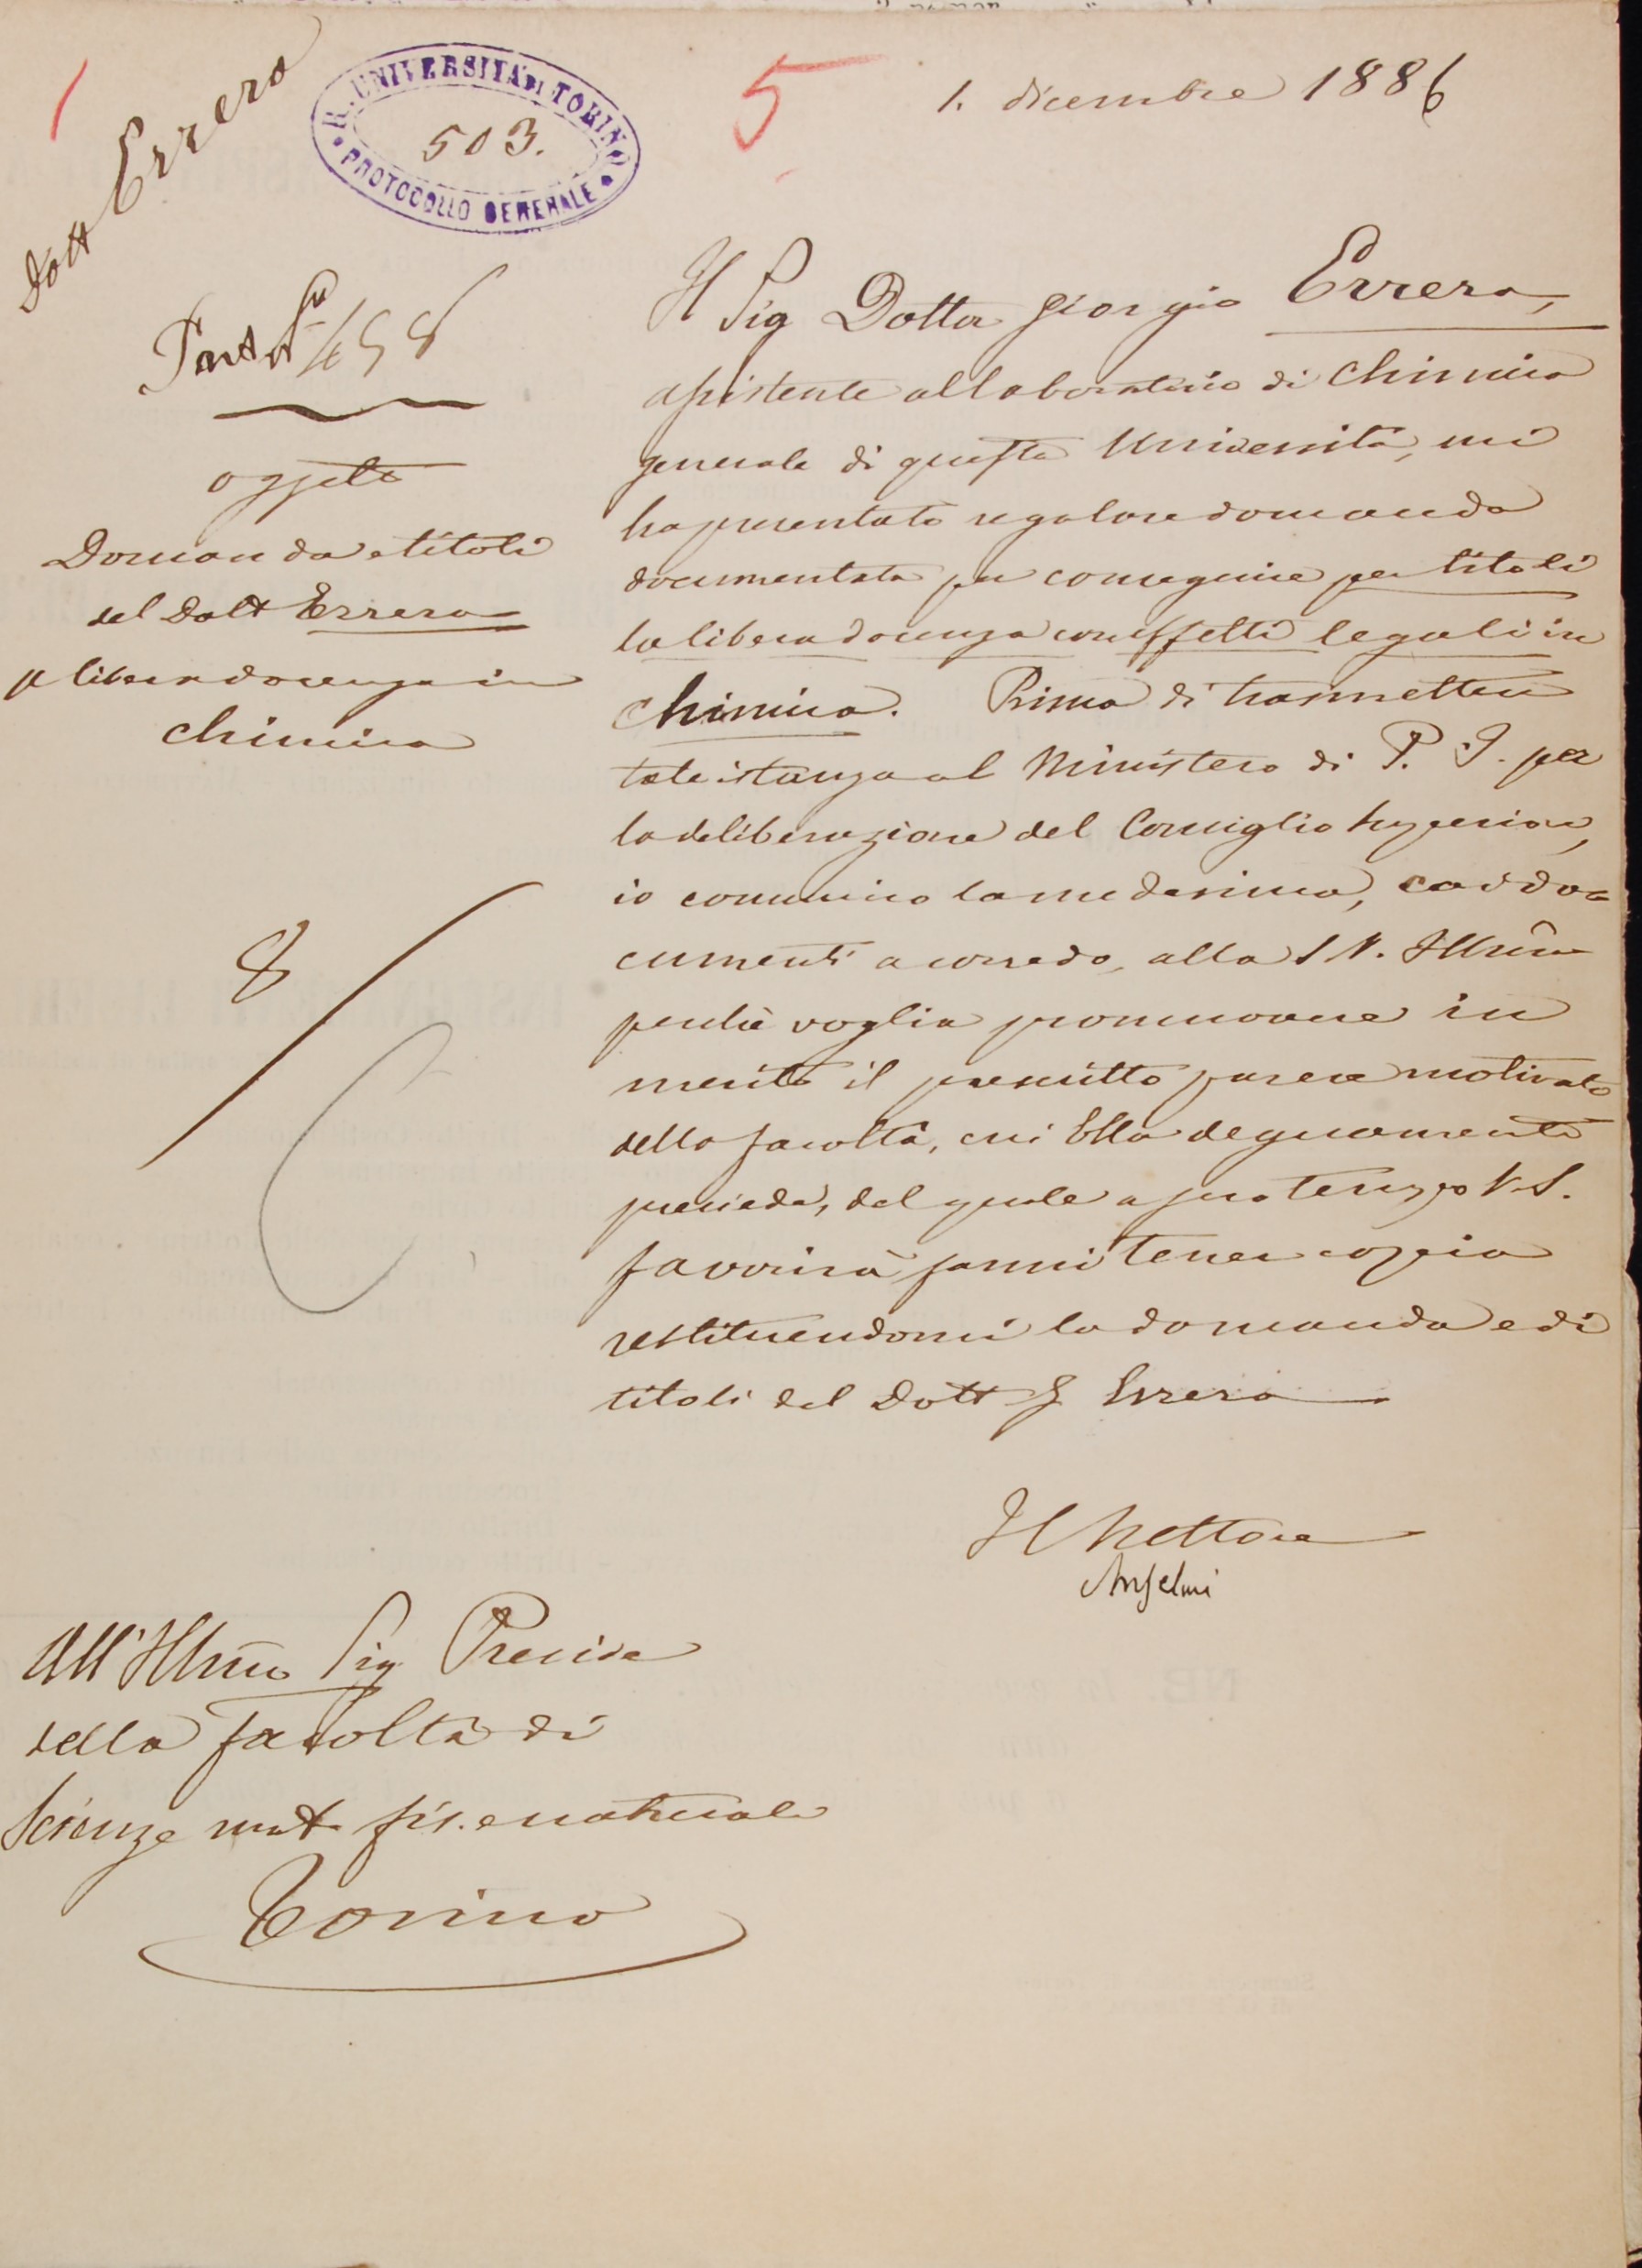 Dott Errera
R. UNIVERSITÀ DI TORINO
503.
PROTOCOLLO GENERALE
5
1. dicembre 1886
oggetto
Domanda e titoli
del Dott Errera
p libera docenza in
chimica
8
Il Sig Dottor Giorgio Errera,
assistente al laboratorio di Chimica
generale di questa Università, mi
ha presentato regolare domanda
documentata per conseguire per titoli
la libera docenza con effetti legali in
Chimica. Prima di trasmettere
tale istanza al Ministero di P. I. per
la deliberazione del Consiglio Superiore,
io comunico la medesima, coi do=
cumenti a corredo, alla S V. Illma
perchè voglia promuovere in
merito il prescritto parere motivato
della facoltà, cui Ella degnamente
presiede, del quale a suo tempo V. S.
favorirà farmi tener copia
restituendomi la domanda ed i
titoli del Dott G Errera
Il Rettore
Anselmi
All' Illmo Sig Preside
della facoltà di
Scienze mat fis. e naturali
Torino